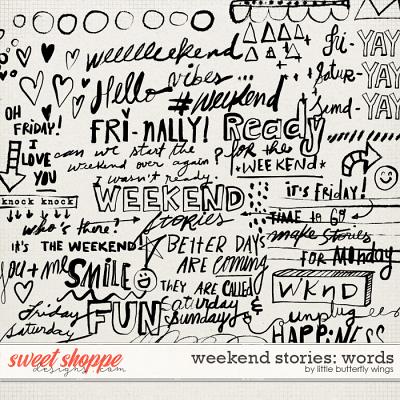 weeeeeekend
vibes...
Hello
#weekend
fri-YAY
Satur-YAY
sund-YAY
OH
FRIDAY!
FRI-NALLY!
Ready
for the
*WEEKEND*
I
LOVE
YOU
can we start the
weekend over again?
I wasn't ready.
knock knock
WEEKEND
stories
it's FRIDAY!
TIME TO GO
make stories
FOR MONDAY
who's there?
IT'S THE WEEKEND
BETTER DAYS
ARE COMING
THEY ARE CALLED
saturday
& Sunday
you + me
SMILE
WKND
Friday
Saturday
FUN
unplug
HAPPINESS
sweet shoppe
designs .com
weekend stories: words
by little butterfly wings